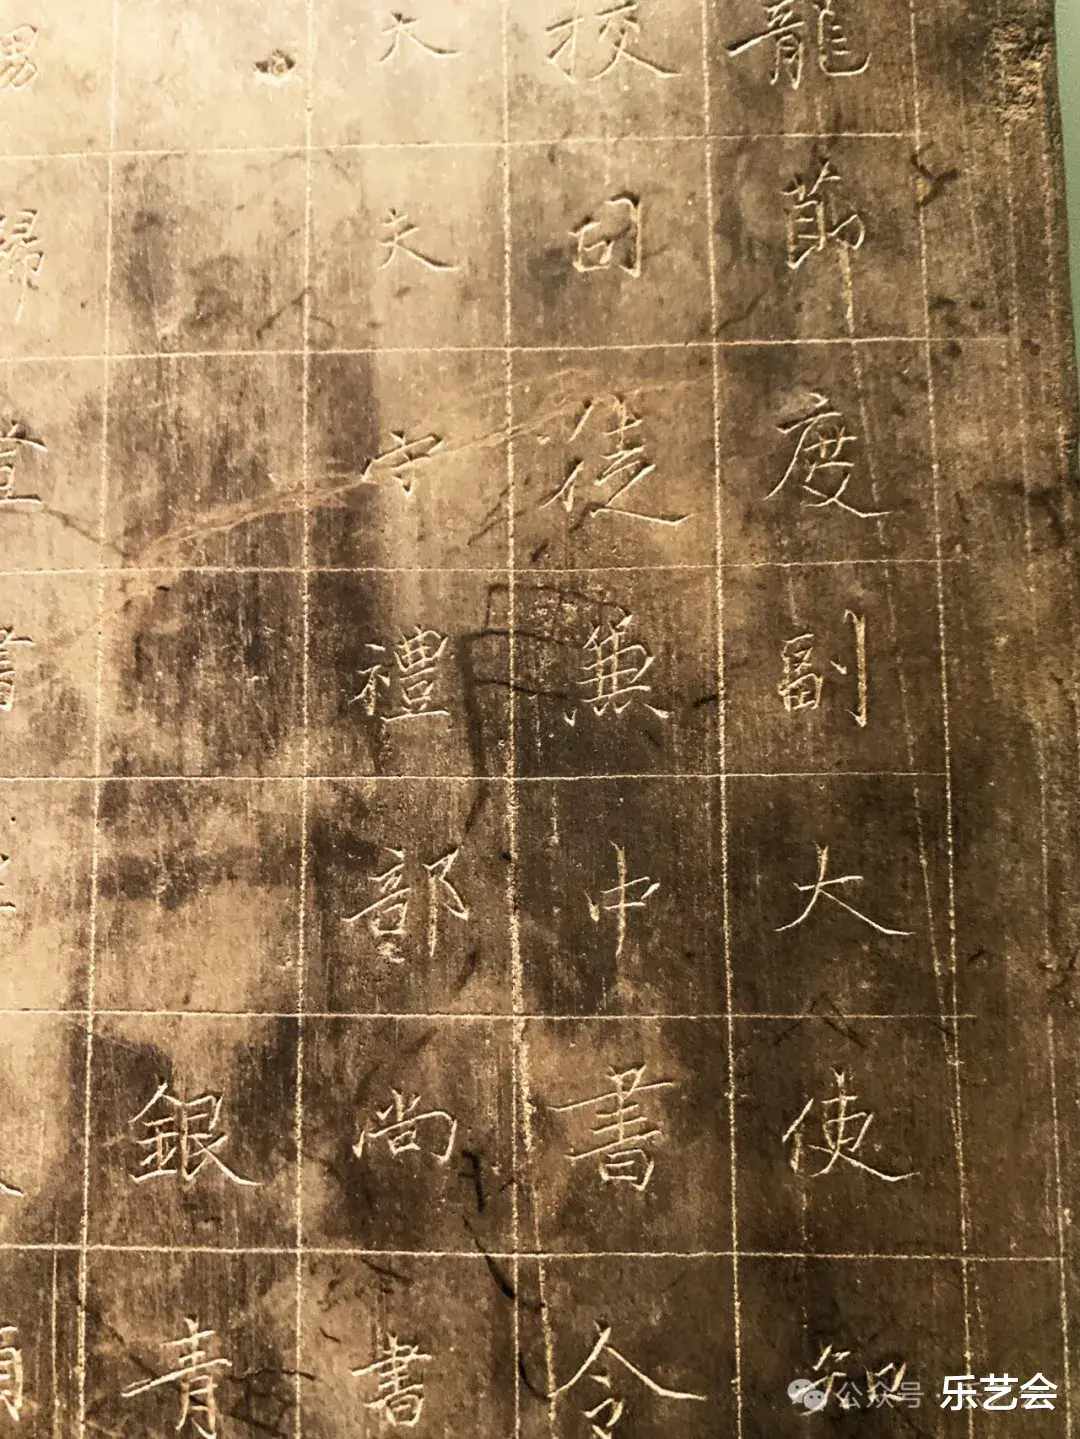 龍節度副大使知
挍司徒兼中書令
大夫守禮部尚書
銀青
公众号
乐艺会